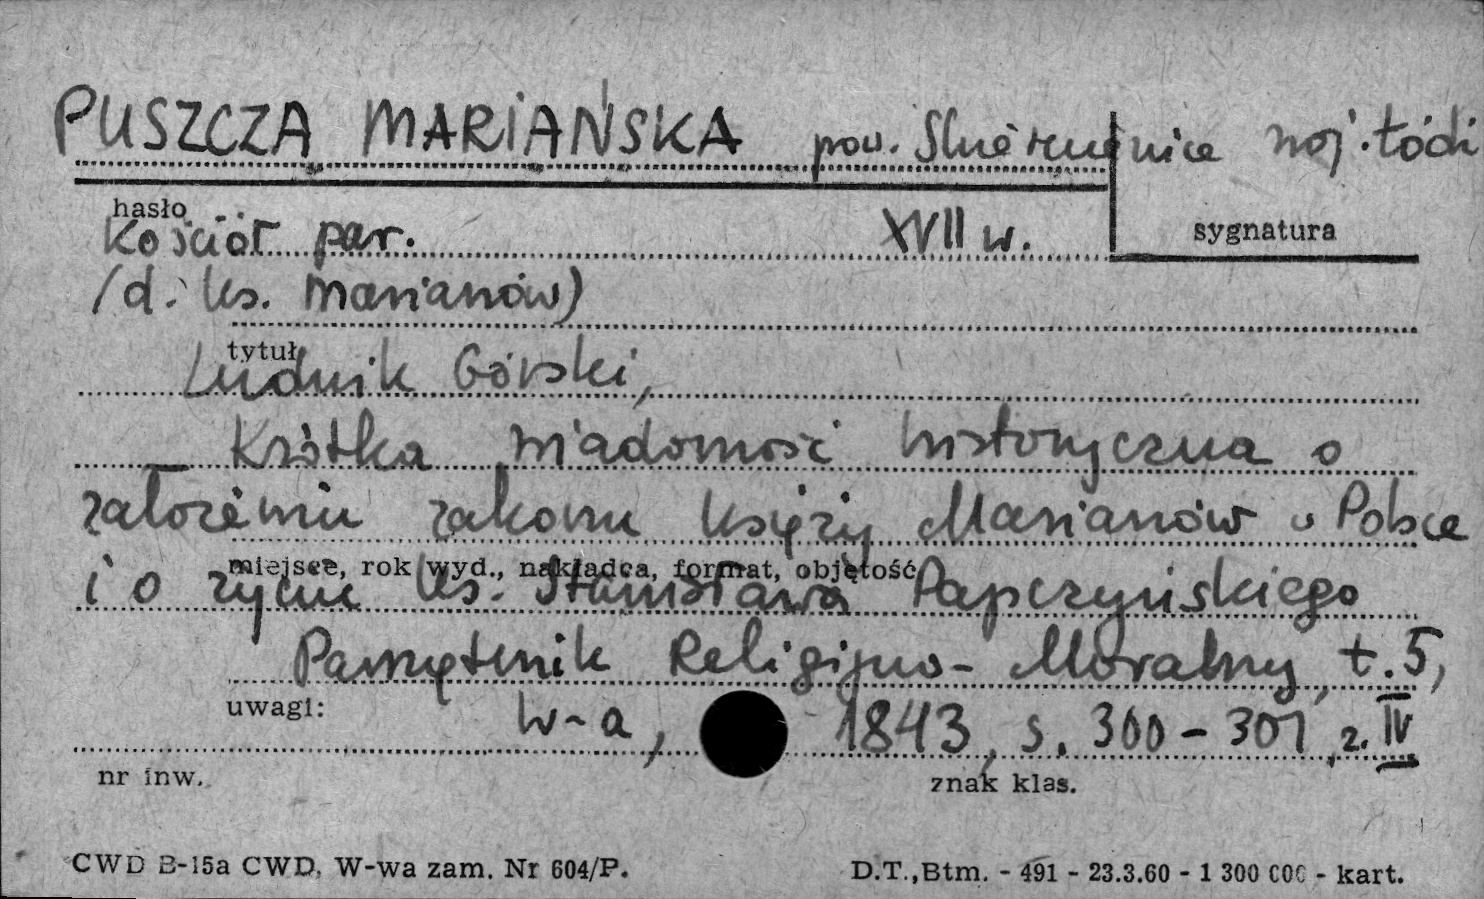 PUSZCZA MARIAŃSKA pow. Skierniewice woj. Łódź
hasło
Kościół par. XVII w.
sygnatura
(d. ks. Marianów)
tytuł
Ludwik Górski,
Krótka wiadomość historyczna o
założeniu zakonu księży Marianów w Polsce
miejsce, rok wyd., nakładca, format, objętość
i o życiu ks. Stanisława Papczyńskiego
Pamiętnik Religijno-Moralny, t. 5,
uwagi:
W-a, 1843, s. 300-301, z. IV
nr inw.
znak klas.
CWD B-15a CWD. W-wa zam. Nr 604/P.
D.T., Btm. - 491 - 23.3.60 - 1 300 000 - kart.